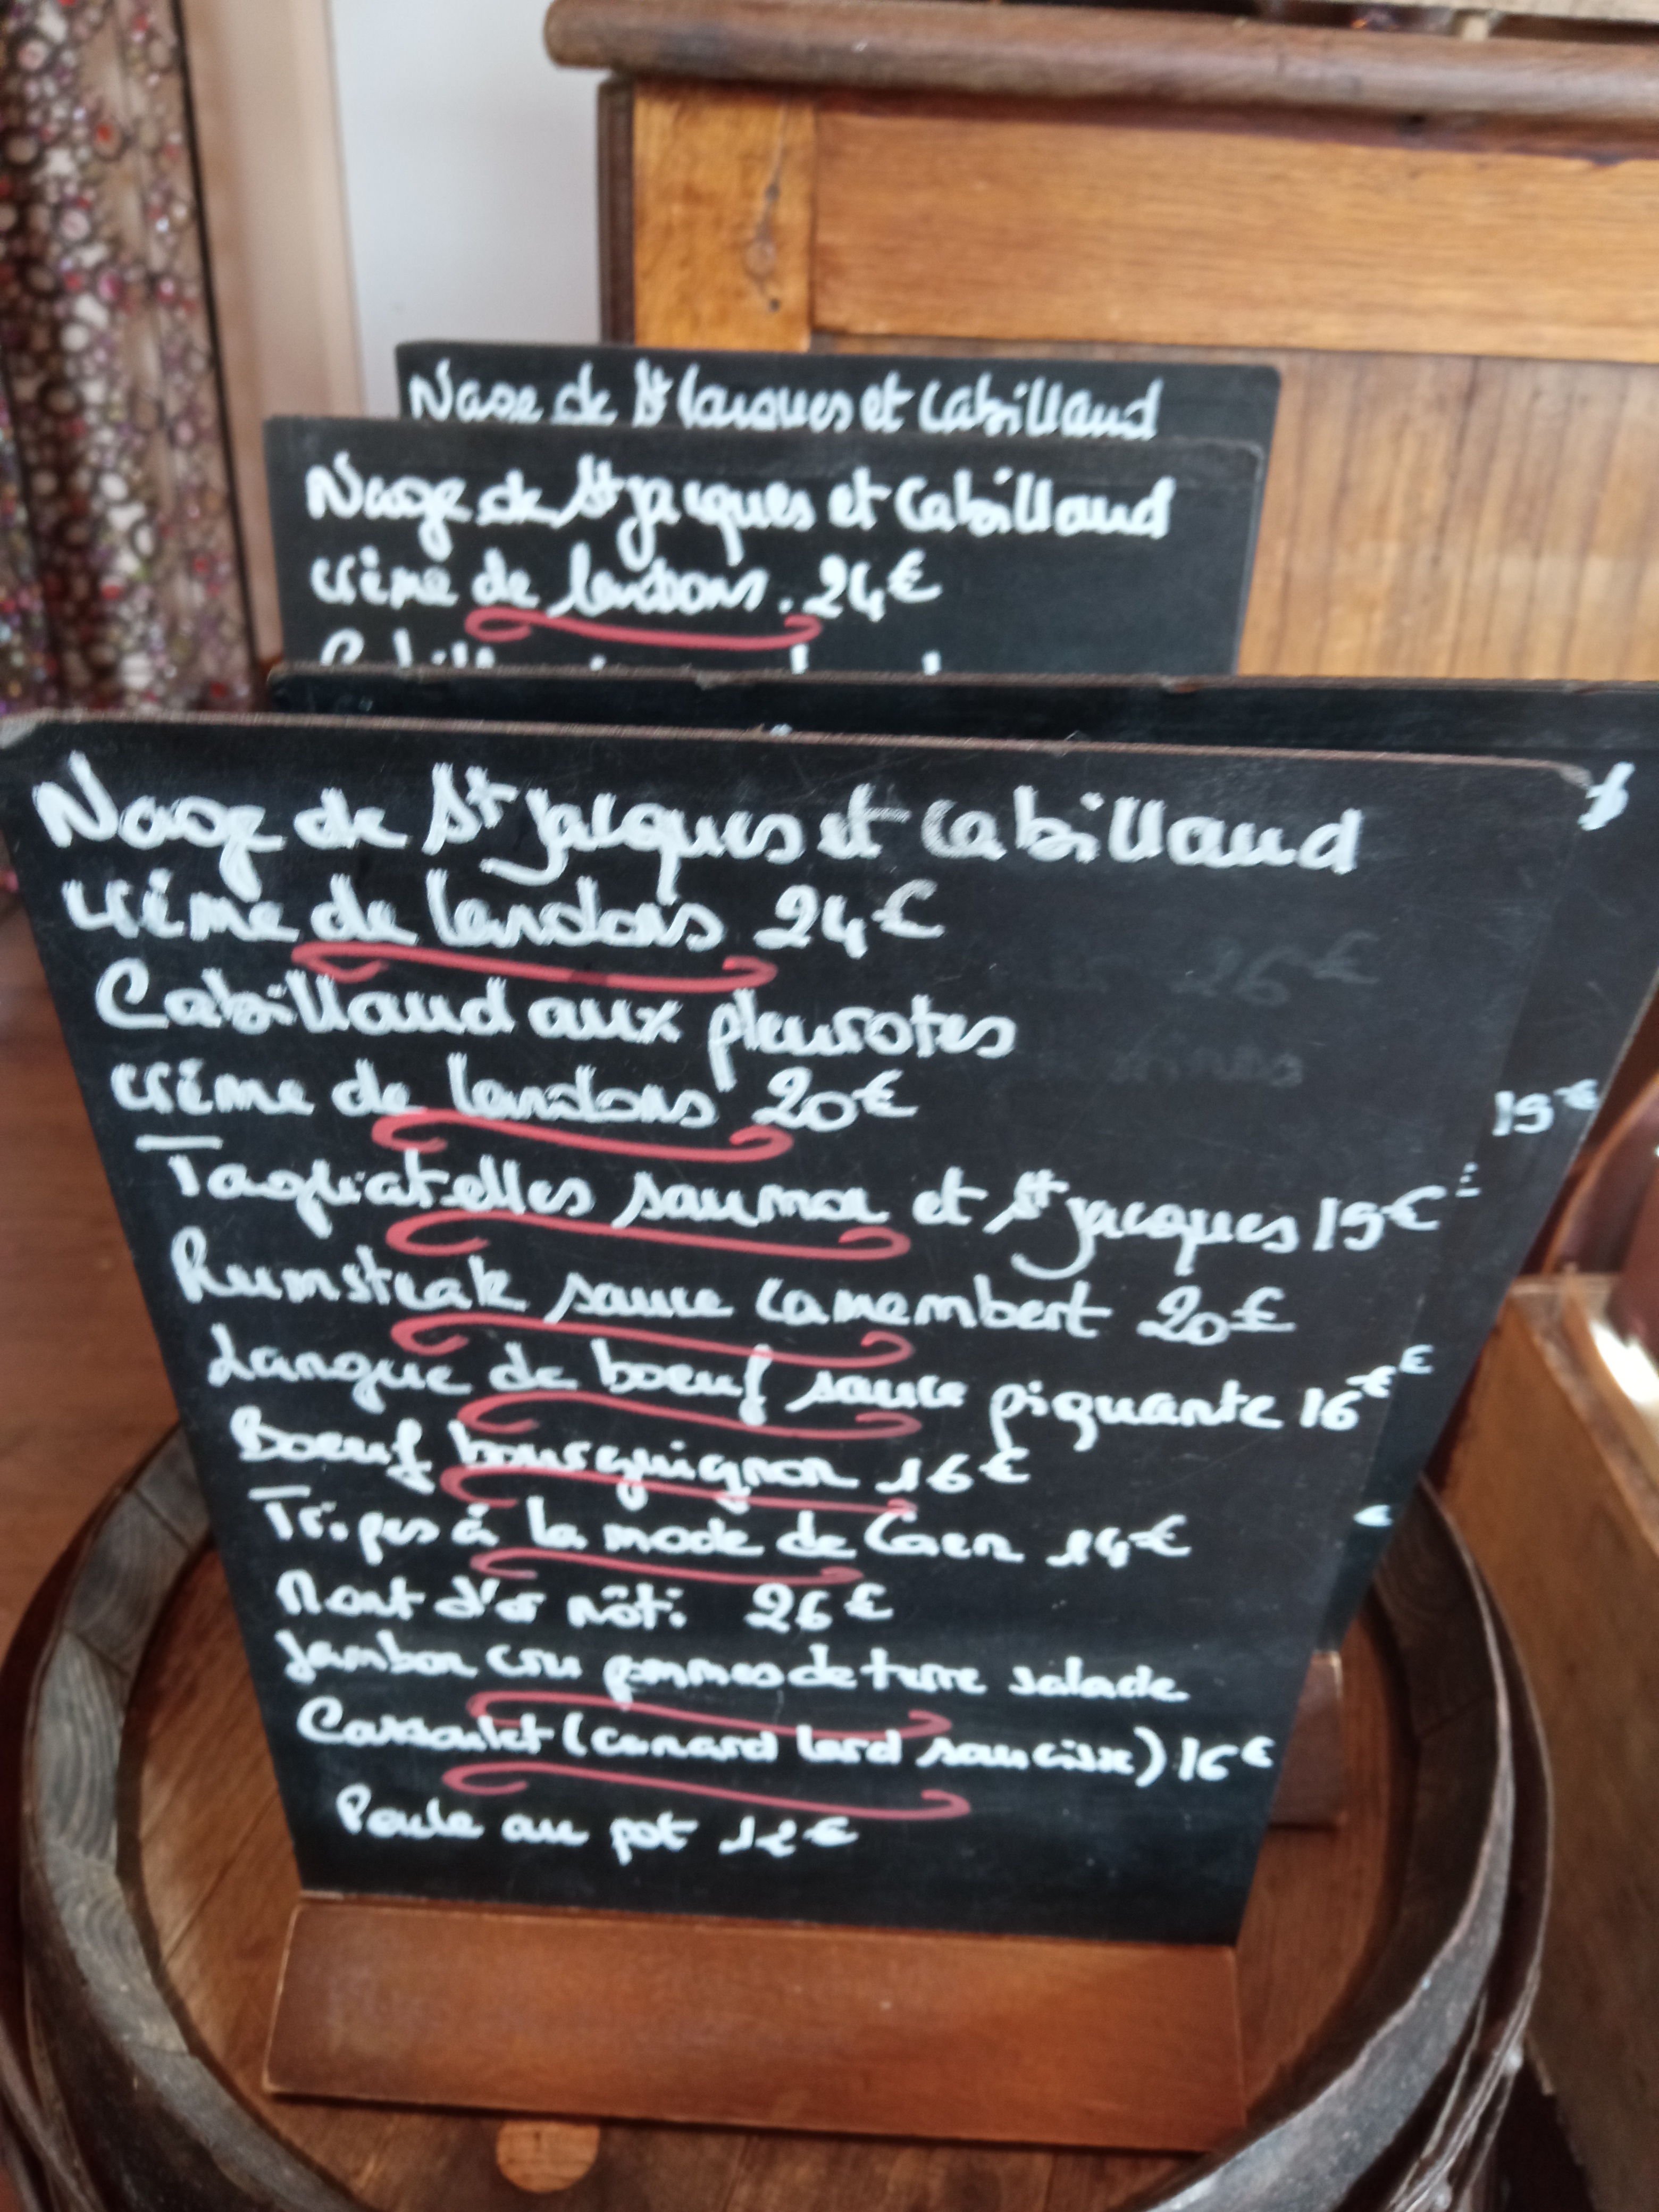 Nage de St Jacques et Cabillaud
Nage de St Jacques et Cabillaud
crème de lardons. 24€
Nage de St Jacques et Cabillaud
crème de lardons 24€
Cabillaud aux pleurotes
crème de lardons 20€
Tagliatelles saumon et St Jacques 19€
Rumsteak sauce camembert 20€
Langue de boeuf sauce piquante 16€
Boeuf bourguignon 16€
Tripes à la mode de Caen 14€
Mont d'or rôti 26€
Jambon cru pommes de terre salade
Cassoulet (canard lard saucisse) 16€
Poule au pot
26€
15€
€
€